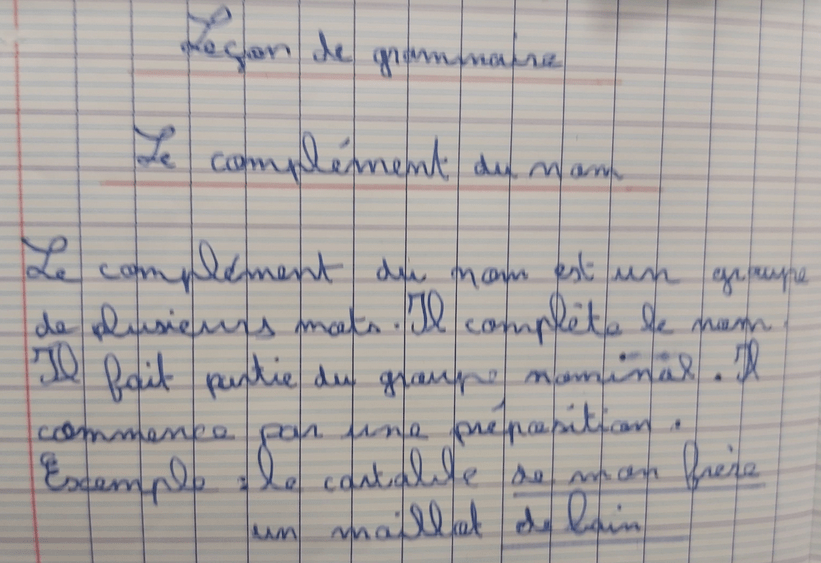 Leçon de grammaire
Le complément du nom
Le complément du nom est un groupe
de plusieurs mots. Il complète le nom.
Il fait partie du groupe nominal. Il
commence par une préposition.
Exemple : le cartable de mon frère
un maillot de bain